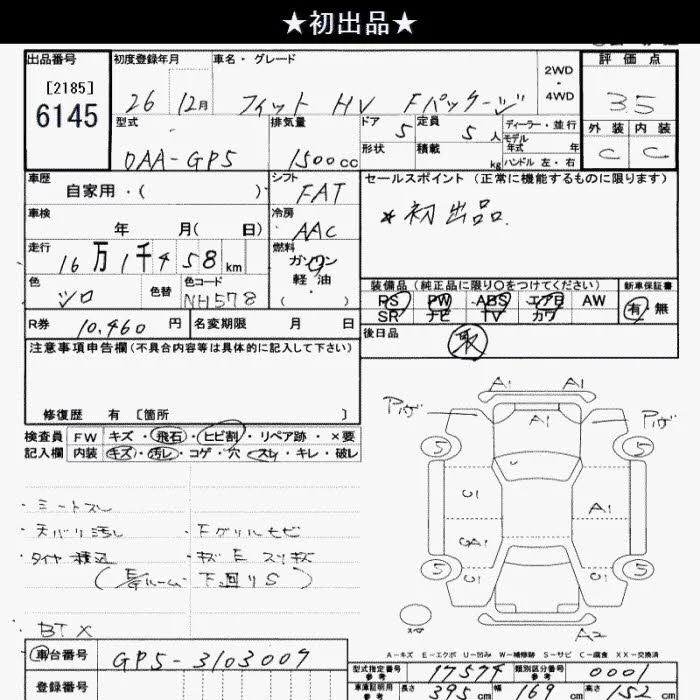 ★初出品★
出品番号 初度登録年月 車名・グレード 2WD・4WD 評価点
[2185]
6145
26 12月 フィット HV Fパッケージ 3.5
型式 排気量 ドア 5 定員 5人 ディーラー・並行 外装 内装
DAA-GP5 1500cc 形状 積載 kg モデル年式 年 ハンドル 左・右 C C
車歴 シフト セールスポイント (正常に機能するものに限ります)
自家用・( ) FAT
車検 冷房 *初出品.
年 月( 日) AAC
走行 燃料
16万1千458km ガソリン 軽・油 ・( )
色 色替 色コード 装備品 (純正品に限り○をつけてください) 新車保証書
シロ NH578 PS PW ABS エアB AW 有・無
SR ナビ TV カワ
R券 10,460円 名変期限 月 日 後日品 取
注意事項申告欄(不具合内容等は具体的に記入して下さい)
修復歴 有 [箇所 ]
検査員 FW キズ・飛石・ヒビ割・リペア跡・×要
記入欄 内装 キズ・汚レ・コゲ・穴・スレ・キレ・破レ
A1 A1
A1
5 5
U1 A1
UA1
5 U1 U1 5
スペア
A2
・シートスレ
・天バリ汚レ ・Fグリルヒビ
・タイヤ積込 ・キズ E スリキズ
下回りS )
・BT×
A-キズ E-エクボ U-凹み W-補修跡 S-サビ C-腐食 XX-交換済
車台番号 GP5-3103009
型式指定番号 参考 17574 類別区分番号 参考 0001
登録番号
車庫証明用 参考 長さ 395cm 幅 169cm 高さ 152cm